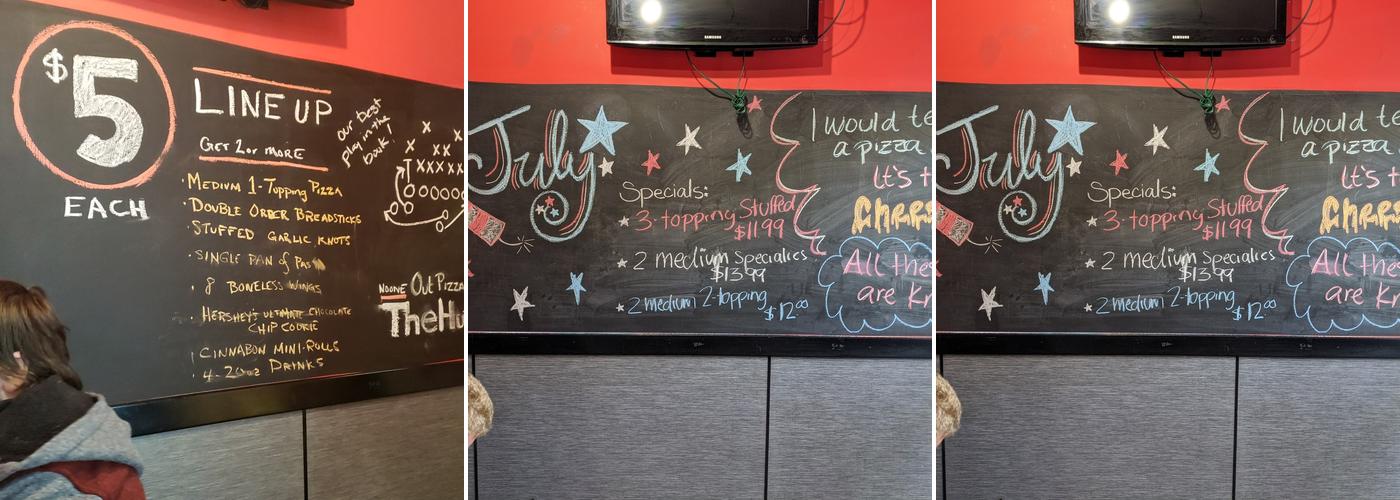 $5
EACH
LINE UP
GET 2 or MORE
· MEDIUM 1-Topping Pizza
· DOUBLE ORDER BREADSTICKS
· STUFFED GARLIC KNOTS
· SINGLE PAN of Pas
· 8 BONELESS WINGS
· HERSHEY'S ULTIMATE CHOCOLATE
CHIP COOKIE
CINNABON MINI-ROLLS
4-20oz DRINKS
our best
play in the
book!
X X
X XXXX
OOOOO
NOONE Out Pizza
The Hu
SAMSUNG
July
Specials:
3-topping Stuffed
$11.99
2 medium Specialies
$13.99
2 medium 2-topping
$12.00
I would te
a pizza
It's t
Chees
All thes
are kn
SAMSUNG
July
Specials:
3-topping Stuffed
$11.99
2 medium Specialies
$13.99
2 medium 2-topping
$12.00
I would te
a pizza
It's t
Chees
All thes
are kn